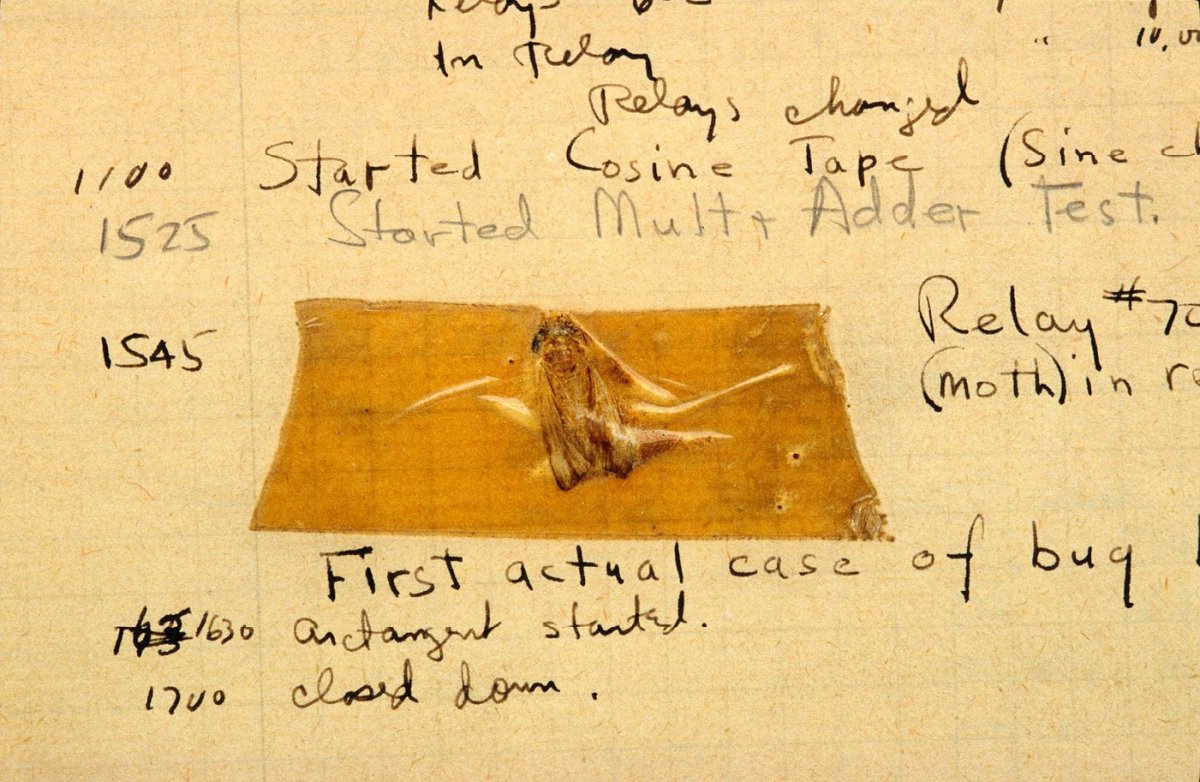 Relays
In Relay " 10,00
Relays changed
1100 Started Cosine Tape (Sine ch
1525 Started Mult + Adder Test.
1545
Relay #70
(moth) in re
First actual case of bug
1630 arctangent started.
1700 closed down.